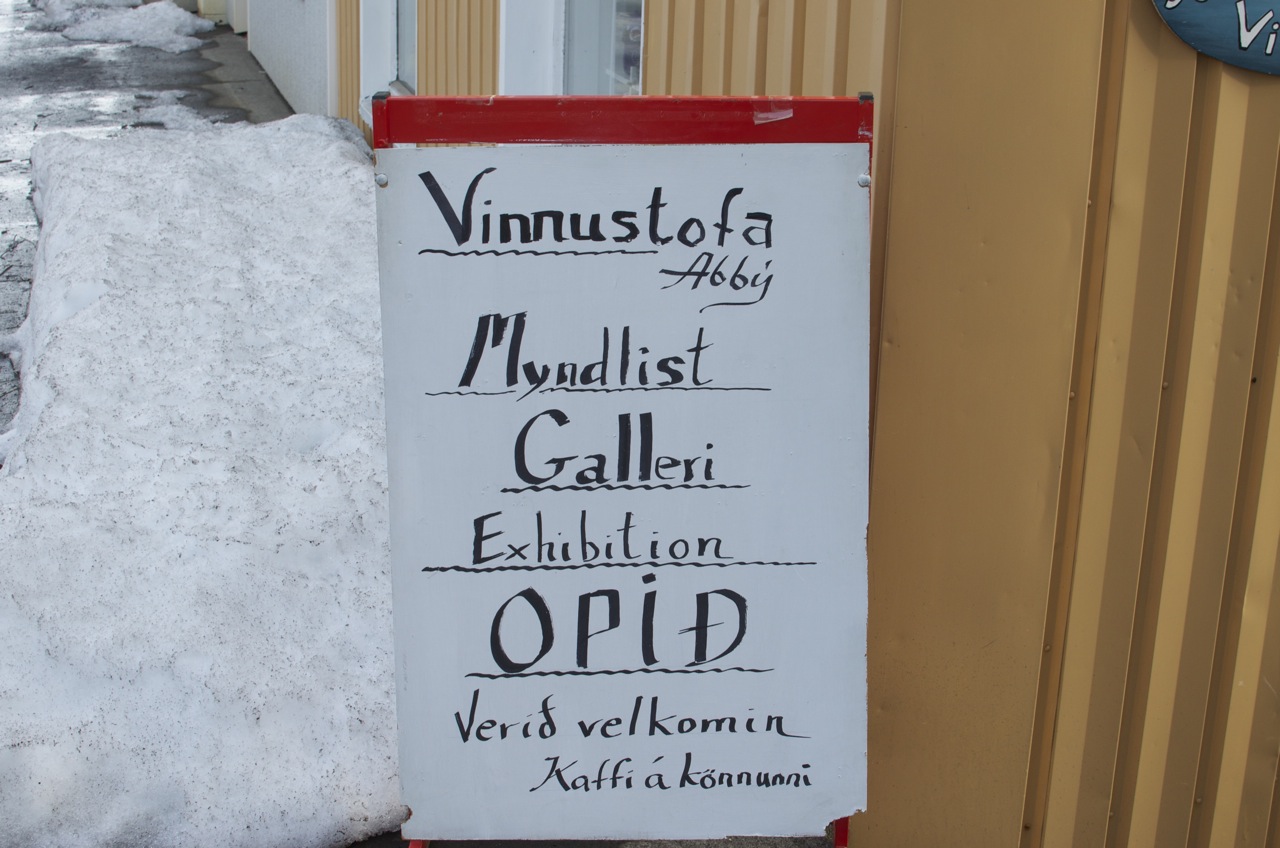 Vinnustofa
Abbý
Myndlist
Galleri
Exhibition
OPIÐ
Verið velkomin
Kaffi á könnunni
Vi